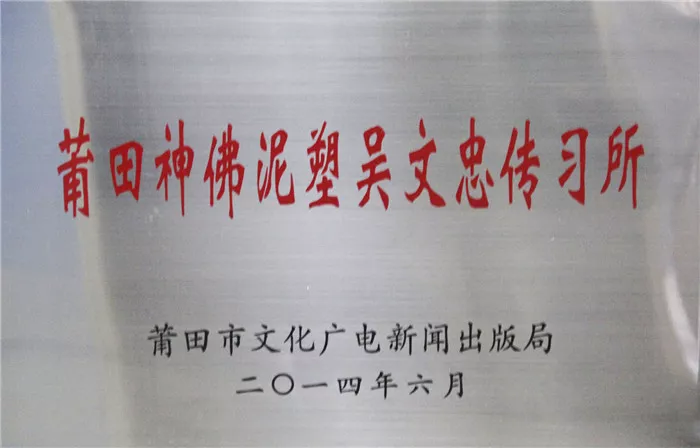 莆田神佛泥塑吴文忠传习所
莆田市文化广电新闻出版局
二〇一四年六月